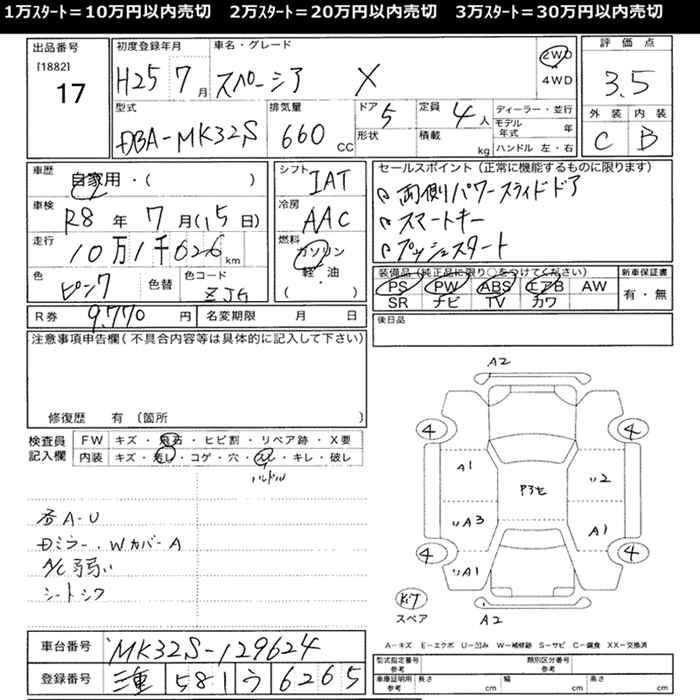 1万ｽﾀｰﾄ＝10万円以内売切　2万ｽﾀｰﾄ＝20万円以内売切　3万ｽﾀｰﾄ＝30万円以内売切
出品番号
[1882]
17
初度登録年月
H25 7月
車名・グレード
スペーシア X
2WD
4WD
評価点
3.5
外装 内装
C B
型式
DBA-MK32S
排気量
660 CC
ドア 5
形状
定員 4人
積載 kg
ディーラー・並行
モデル年式 年
ハンドル 左・右
車歴
自家用・( )
車検
R8年7月(15日)
走行
10万1千626km
色
ピンク
色替
色コード
ZJG
シフト
IAT
冷房
AAC
燃料
ガソリン
軽・油
( )
セールスポイント(正常に機能するものに限ります)
両側パワースライドドア
スマートキー
プッシュスタート
装備品(純正品に限り○をつけてください)
PS PW ABS エアB AW
SR ナビ TV カワ
新車保証書
有・無
後日品
R券 9.770円
名変期限 月 日
注意事項申告欄(不具合内容等は具体的に記入して下さい)
修復歴 有 (箇所 )
検査員記入欄
FW キズ・飛石・ヒビ割・リペア跡・X要
内装 キズ・汚レ・コゲ・穴・スレ・キレ・破レ
ハンドル
各A-U
Dミラー、WカバーA
A/C弱い
シートシワ
A2
4 4
A1
P3セ
リ2
リA3
A1
4 4
リA1
キズ
スペア
A2
車台番号 MK32S-129624
登録番号 三重 581 う 6265
A－キズ E－エクボ U－凹み W－補修跡 S－サビ C－腐食 XX－交換済
型式指定番号
参考
類別区分番号
参考
車庫証明用
参考
長さ cm
幅 cm
高さ cm